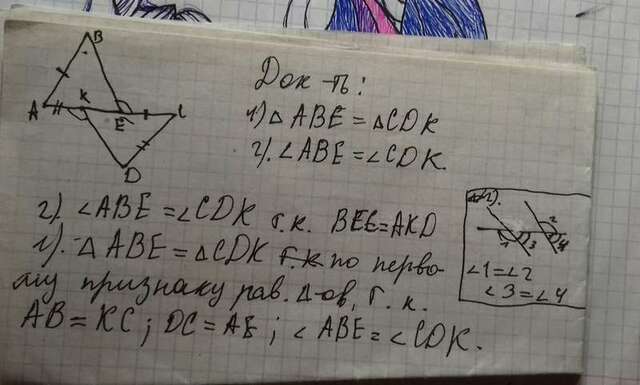 B
A
K
E
C
D
Док-ть:
1) △ABE = △CDK
2). ∠ABE = ∠CDK.
2). ∠ABE = ∠CDK т.к. BEC = AKD
1). △ABE = △CDK т.к по перво-
му признаку рав. △-ов, т.к.
AB = KC ; DC = AE ; ∠ABE = ∠CDK.
2
1 3 4
∠1 = ∠2
∠3 = ∠4